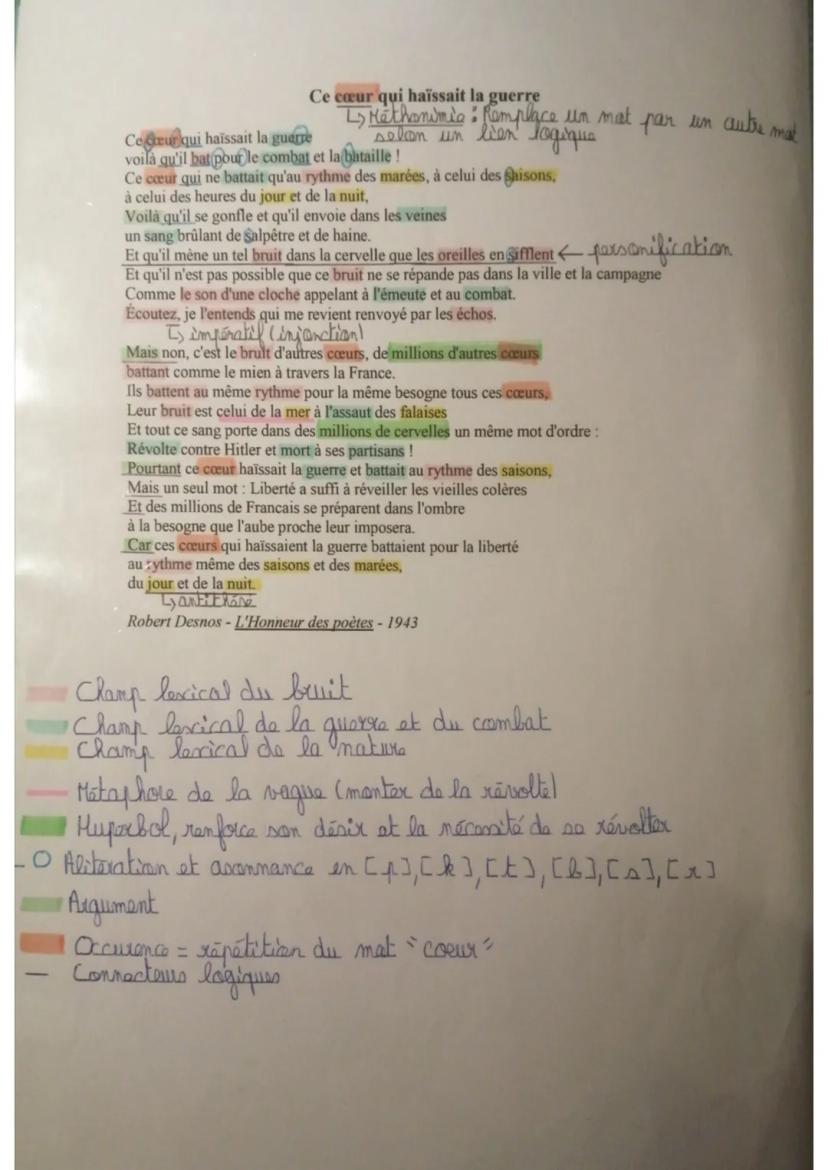 Ce cœur qui haïssait la guerre
↳ Méthonimie : Remplace un mot par un autre mot
selon un lien logique
Ce cœur qui haïssait la guerre
voilà qu'il bat pour le combat et la bataille !
Ce cœur qui ne battait qu'au rythme des marées, à celui des saisons,
à celui des heures du jour et de la nuit,
Voilà qu'il se gonfle et qu'il envoie dans les veines
un sang brûlant de salpêtre et de haine.
Et qu'il mène un tel bruit dans la cervelle que les oreilles en sifflent ← personification
Et qu'il n'est pas possible que ce bruit ne se répande pas dans la ville et la campagne
Comme le son d'une cloche appelant à l'émeute et au combat.
Écoutez, je l'entends qui me revient renvoyé par les échos.
↳ impératif (injonction)
Mais non, c'est le bruit d'autres cœurs, de millions d'autres cœurs
battant comme le mien à travers la France.
Ils battent au même rythme pour la même besogne tous ces cœurs,
Leur bruit est celui de la mer à l'assaut des falaises
Et tout ce sang porte dans des millions de cervelles un même mot d'ordre :
Révolte contre Hitler et mort à ses partisans !
Pourtant ce cœur haïssait la guerre et battait au rythme des saisons,
Mais un seul mot : Liberté a suffi à réveiller les vieilles colères
Et des millions de Francais se préparent dans l'ombre
à la besogne que l'aube proche leur imposera.
Car ces cœurs qui haïssaient la guerre battaient pour la liberté
au rythme même des saisons et des marées,
du jour et de la nuit.
↳ antithèse
Robert Desnos - L'Honneur des poètes - 1943
Champ lexical du bruit
Champ lexical de la guerre et du combat
Champ lexical de la nature
Métaphore de la vague (monter de la révolte)
Hyperbol, renforce son désir et la nécessité de se révolter
Alitération et asonnance en [p], [k], [t], [b], [s], [r]
Argument
Occurence = répétition du mot "coeur"
Connecteurs logiques